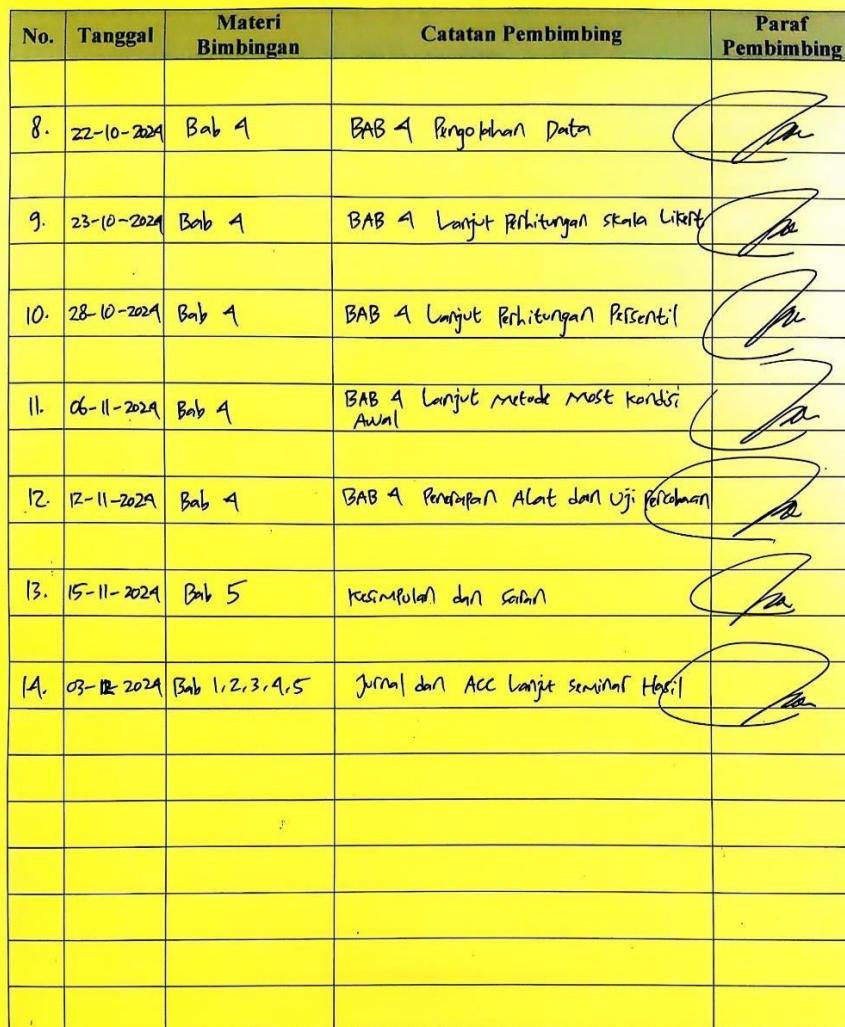 No. Tanggal Materi Bimbingan Catatan Pembimbing Paraf Pembimbing
8. 22-10-2024 Bab 4 BAB 4 Pengolahan Data
9. 23-10-2024 Bab 4 BAB 4 Lanjut Perhitungan skala Likert
10. 28-10-2024 Bab 4 BAB 4 Lanjut Perhitungan Persentil
11. 06-11-2024 Bab 4 BAB 4 Lanjut metode Most kondisi
Awal
12. 12-11-2024 Bab 4 BAB 4 Penerapan Alat dan Uji Percobaan
13. 15-11-2024 Bab 5 Kesimpulan dan saran
14. 03-12-2024 Bab 1,2,3,4,5 Jurnal dan ACC Lanjut seminar Hasil